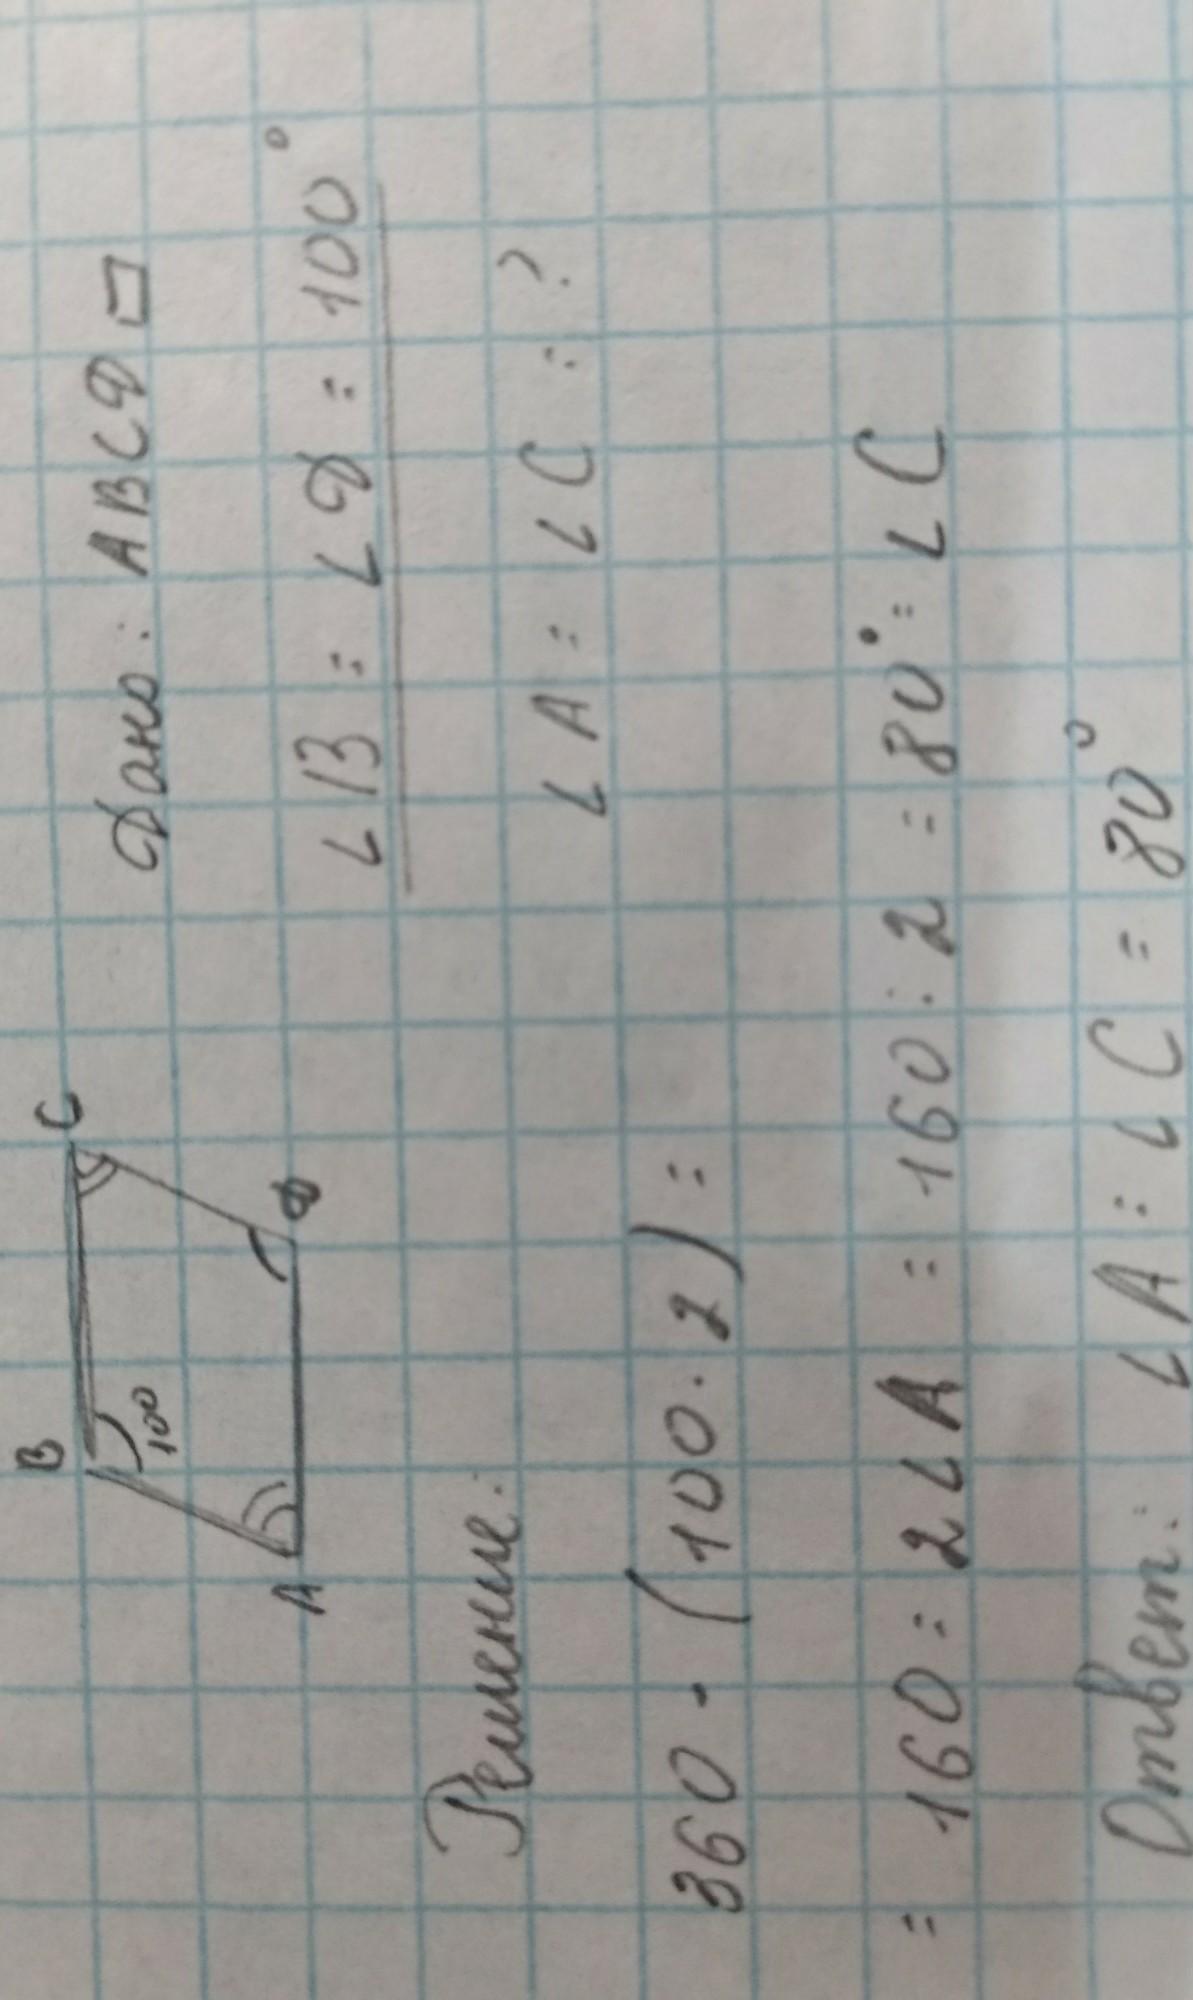 B C
100
A D
Дано: ABCD ▱
∠B = ∠D = 100°
∠A = ∠C = ?
Решение:
360 - (100 · 2) =
= 160 = 2∠A = 160 : 2 = 80° = ∠C
Ответ: ∠A = ∠C = 80°